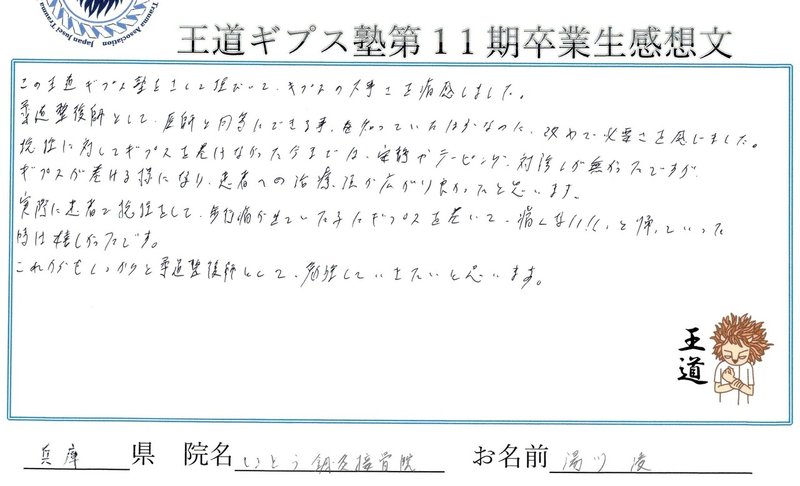 Trauma Association Japan Josei Trauma
王道ギプス塾第11期卒業生感想文
この王道ギプス塾を通して、ギプスの大事さを痛感しました。
柔道整復師として、医師と同等にできる事、を知っていたはずなのに、改めて必要さを感じました。
捻挫に対してギプスを巻けなかった今までは、安静かテーピング、対処しか無かったですが、
ギプスが巻ける様になり、患者への治療法が広がり良かったと思います。
実際に患者で捻挫をして、歩行痛が出ていた子にギプスを巻いて、痛くない!!、と帰っていった
時は嬉しかったです。
これからもしっかりと柔道整復師として、勉強していきたいと思います。
王道
兵庫 県 院名 いとう鍼灸接骨院 お名前 湯川 凌